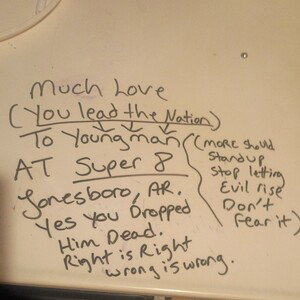 Much Love
(You lead the Nation)
To Young man
AT Super 8
Jonesboro, AR.
Yes You Dropped
Him Dead.
Right is Right
wrong is wrong.
(MORE should
Stand up
Stop letting
Evil rise
Don't
fear it)